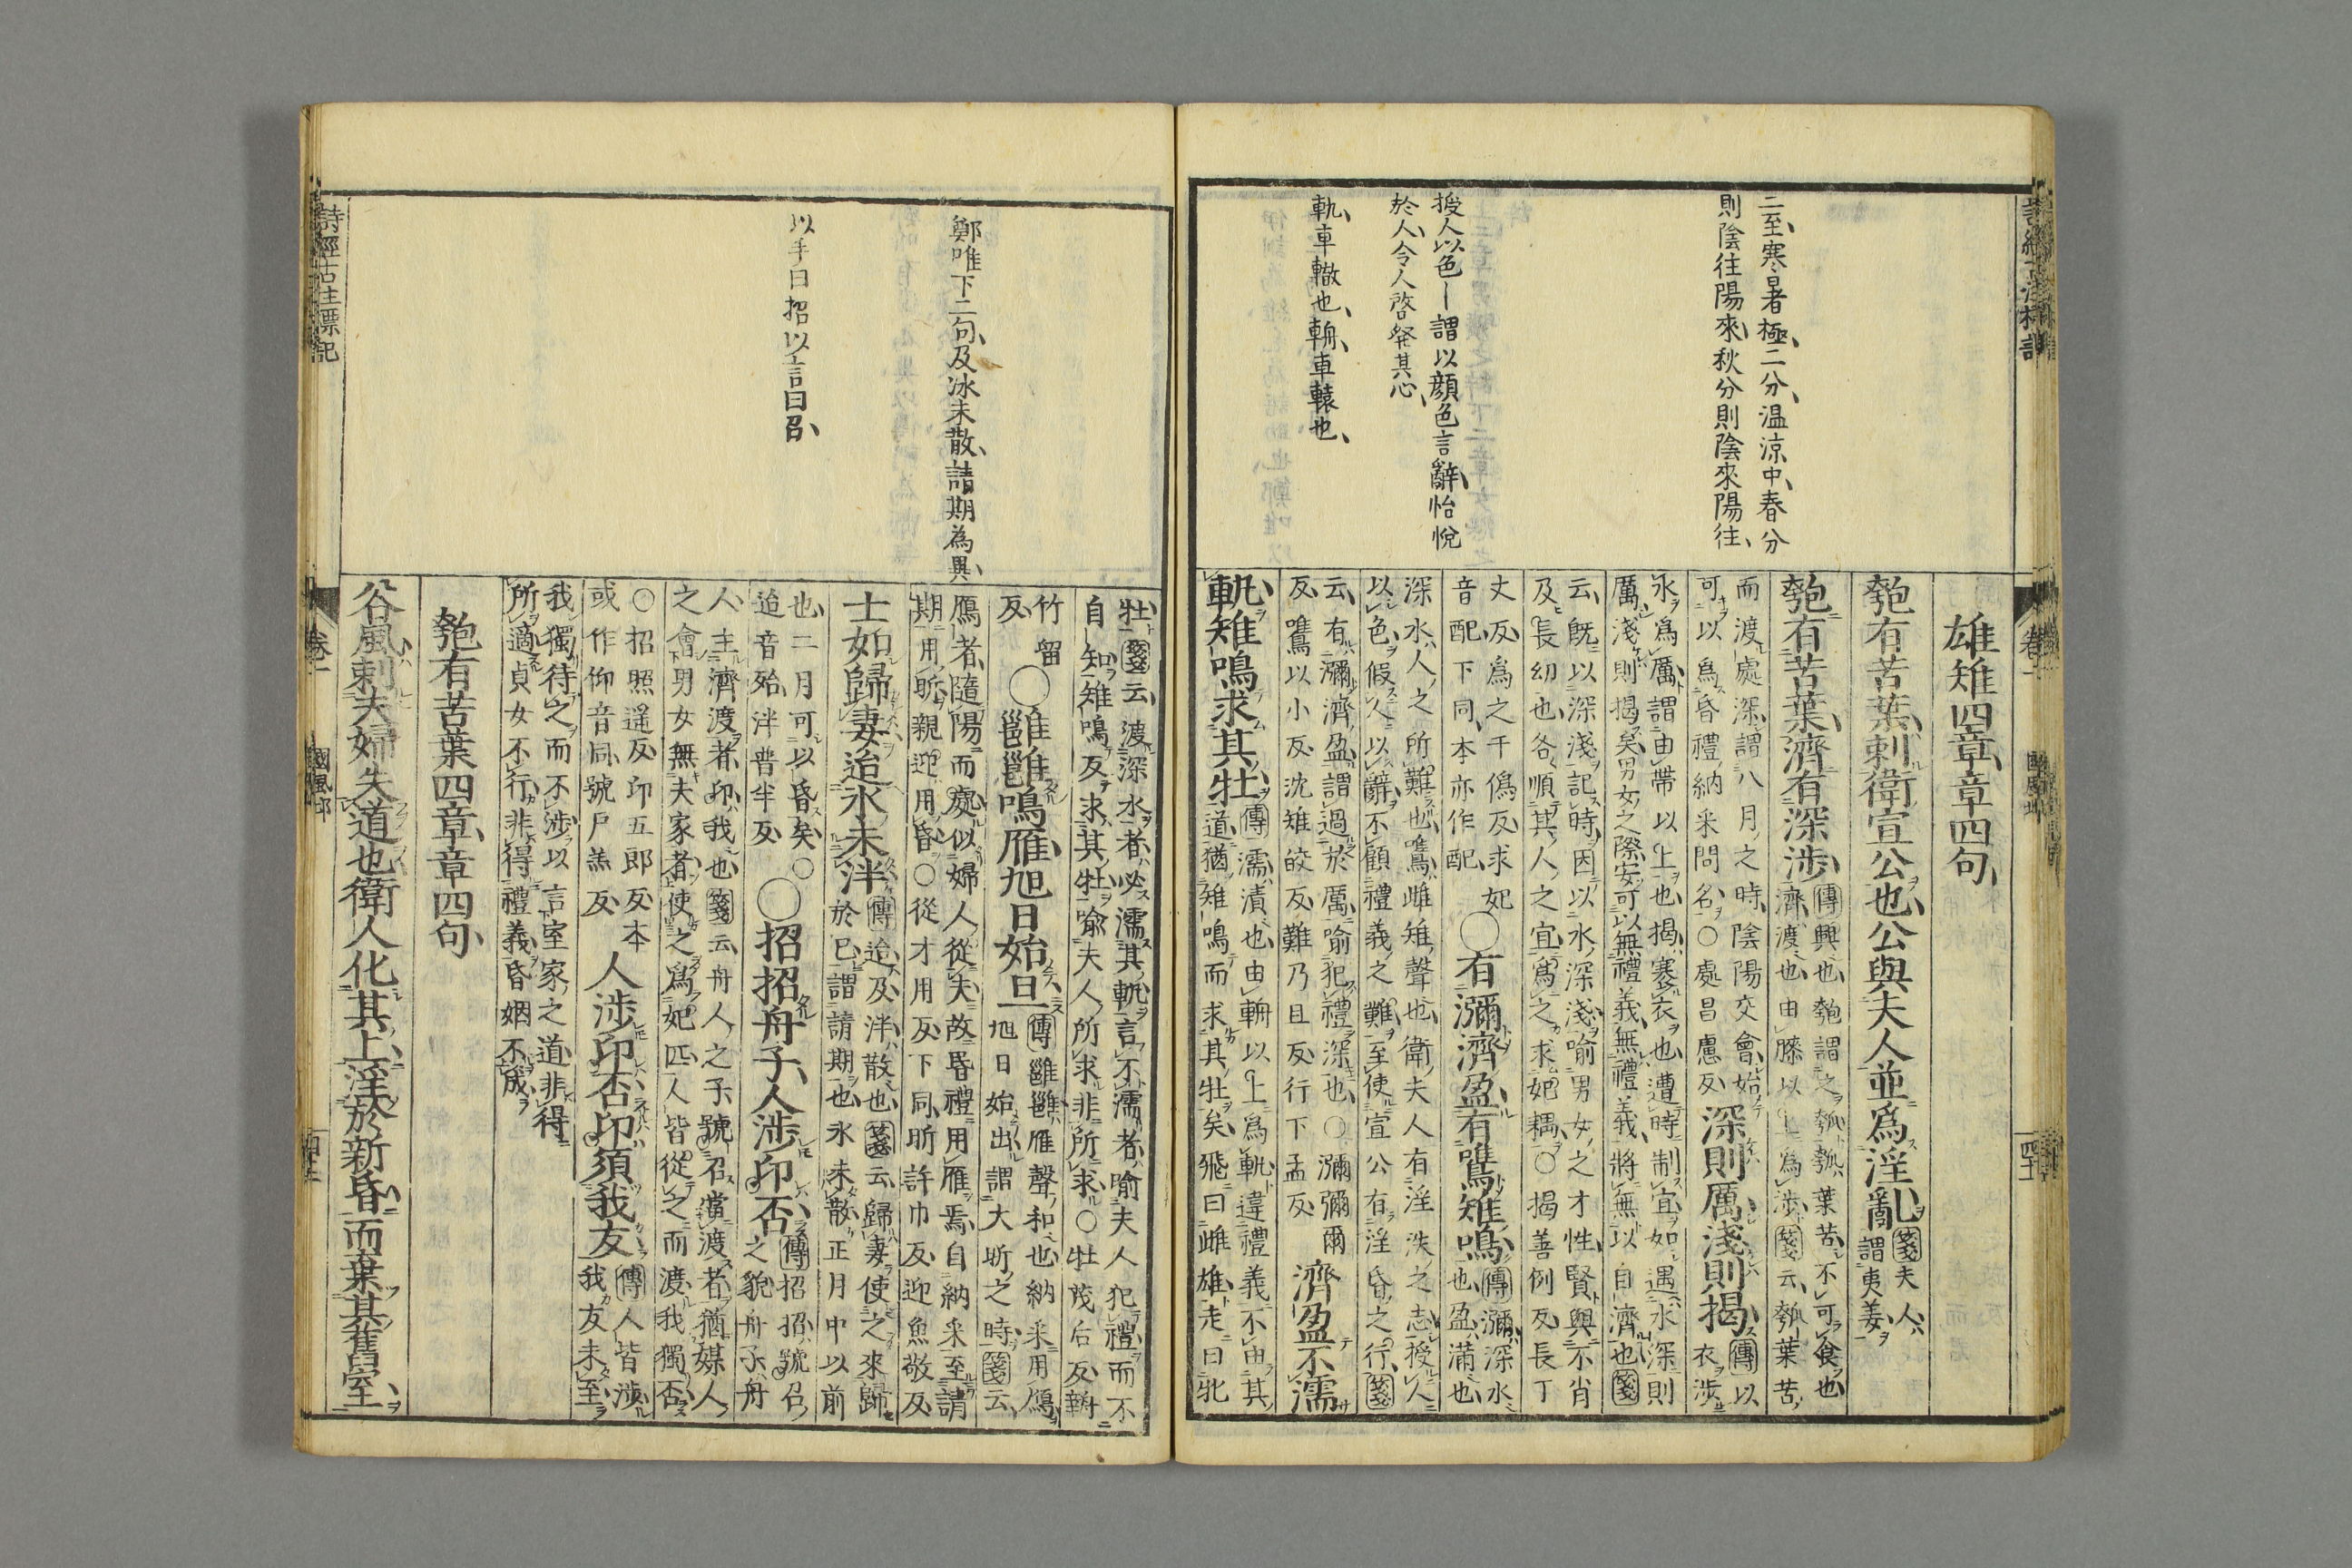 二至寒暑極二分温涼中春分
則陰往陽來秋分則陰來陽往
授人以色—謂以顔色言辭怡悅
於人令人啓發其心
軌車轍也軓車轅也
雄雉四章章四句
匏有苦葉刺衛宣公也公與夫人並爲淫亂
箋夫人
謂夷姜
匏有苦葉濟有深涉
傳興也匏謂之瓠瓠葉苦不可食也
濟渡也由膝以上爲涉箋云瓠葉苦
而渡處深謂八月之時陰陽交會始
可以爲昏禮納采問名○處昌慮反
深則厲淺則揭
傳以
衣涉
水爲厲謂由帶以上也揭褰衣也遭時制宜如遇水深則
厲淺則揭矣男女之際安可以無禮義無禮義將無以自濟也箋
云旣以深淺記時因以水深淺喻男女之才性賢與不肖
及長幼也各順其人之宜爲之求妃耦○揭善例反長丁
丈反爲之千僞反求妃
音配下同本亦作配
○有瀰濟盈有鷕雉鳴
傳瀰深水
也盈滿也
深水人之所難也鷕雌雉聲也衛夫人有淫泆之志授人
以色假人以辭不顧禮義之難至使宣公有淫昏之行箋
云有瀰濟盈謂過於厲喻犯禮深也○瀰彌爾
反鷕以小反沈雉皎反難乃旦反行下孟反
濟盈不濡
軌雉鳴求其牡
傳濡漬也由輈以上爲軌違禮義不由其
道猶雉鳴而求其牡矣飛曰雌雄走曰牝
詩經古注標記
卷二
國風邶
鄭唯下二句及冰未散請期為異
以手曰招以言曰召
牡箋云渡深水者必濡其軌言不濡者喻夫人犯禮而不
自知雉鳴反求其牡喻夫人所求非所求○牡茂后反輈
竹留
反
○雝雝鳴雁旭日始旦
傳雝雝雁聲和也納采用鴈
旭日始出謂大昕之時箋云
鴈者隨陽而處似婦人從夫故昏禮用雁焉自納采至請
期用昕親迎用昏○從才用反下同昕許巾反迎魚敬反
士如歸妻迨冰未泮
傳迨及泮散也箋云歸妻使之來歸
於已謂請期也氷未散正月中以前
也二月可以昏矣○
迨音殆泮普半反
○招招舟子人涉卬否
傳招招號召
之貌舟子舟
人主濟渡者卬我也箋云舟人之子號召當渡者猶媒人
之會男女無夫家者使之爲妃匹人皆從之而渡我獨否
○招照遥反卬五郎反本
或作仰音同號戶羔反
人涉卬否卬須我友
傳人皆涉
我友未至
我獨待之而不涉以言室家之道非得
所適貞女不行非得禮義昏姻不成
匏有苦葉四章章四句
谷風刺夫婦失道也衛人化其上淫於新昏而棄其舊室
詩經古注標記
卷二
國風邶